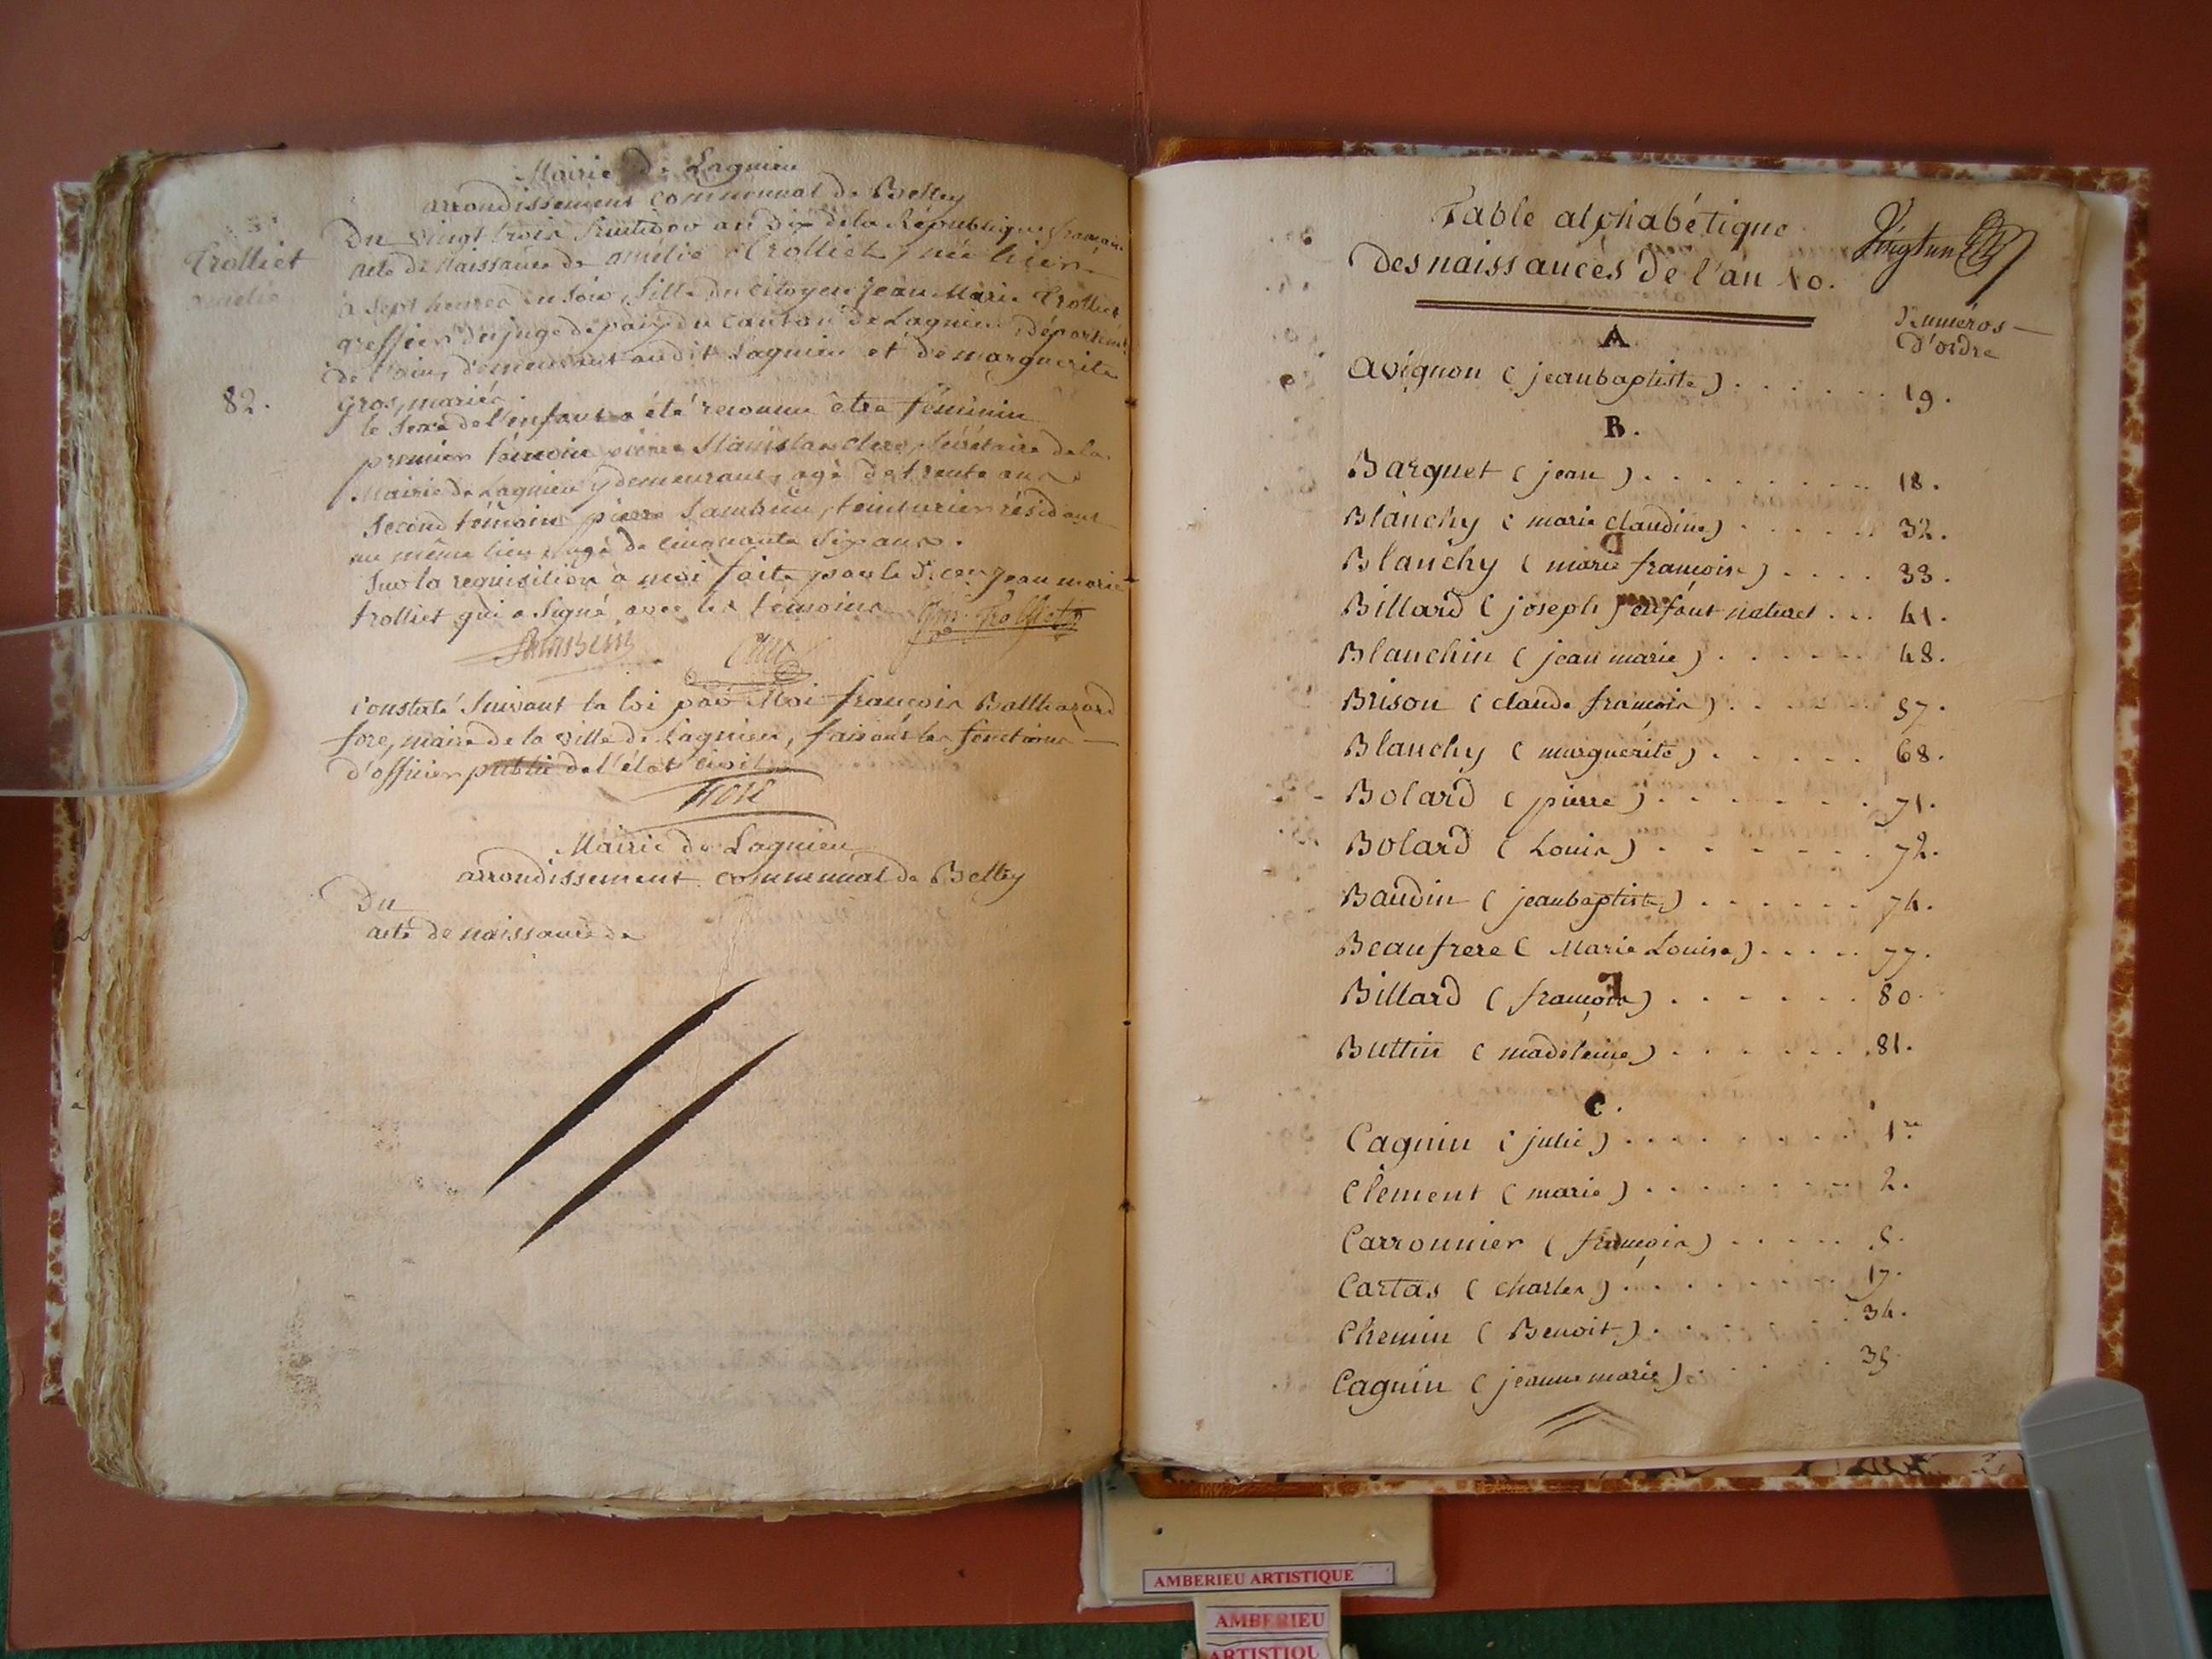 Mairie de Lagnieu
arrondissement communal de Belley
Du vingt trois fructidor an dix de la République française
Trolliet
amélie
acte de Naissance de amélie Trolliet, née hier
à sept heures du soir, fille du citoyen jean Marie Trolliet
greffier du juge de paix du canton de Lagnieu, départemt
de l'ain, demeurant audit Lagnieu et de marguerite
82.
gros, mariés.
le sexe de l'enfant a été reconnu être féminin
premier témoin pierre Stanislas Clerc, secrétaire de la
Mairie de Lagnieu y demeurant, agé de trente ans
Second témoin pierre Lambin, teinturier résidant
au même lieu, agé de cinquante six ans.
Sur la requisition à moi faite par le d. cen jean marie
trolliet qui a signé avec les témoins
constaté suivant la loi par Moi françois Balthazard
fore, maire de la ville de Lagnieu, faisant les fonctions
d'officier public de l'état civil
fore
Mairie de Lagnieu
arrondissement communal de Belley
Du
acte de naissance de
Table alphabétique
des naissances de l'an 10.
Vingtun
Numéros
d'ordre
A
Avignon (jeanbaptiste) . . . . . . 19.
B.
Barquet (jean) . . . . . . . . . 18.
Blanchy (marie claudine) . . . . . . 32.
Blanchy (marie françoise) . . . . 33.
Billard (joseph) enfant naturel . . . 41.
Blanchin (jean marie) . . . . . . 48.
Brison (claude françois) . . . . . 57.
Blanchy (marguerite) . . . . . 68.
Bolard (pierre) . . . . . . . 71.
Bolard (Louis) . . . . . . . 72.
Baudin (jeanbaptiste) . . . . . . 74.
Beaufrere (Marie Louise) . . . . . 77.
Billard (françois) . . . . . . 80.
Buttin (madeleine) . . . . . . . 81.
C.
Cagnin (julie) . . . . . . . . . 1re
Clément (marie) . . . . . . . . 2.
Carronnier (françois) . . . . . 5.
Cartas (charles) . . . . . . . . 17.
Chemin (Benoit) . . . . . . 34.
Cagnin (jeanne marie) . . . . . 35.
AMBERIEU ARTISTIQUE
AMBERIEU
ARTISTIQU